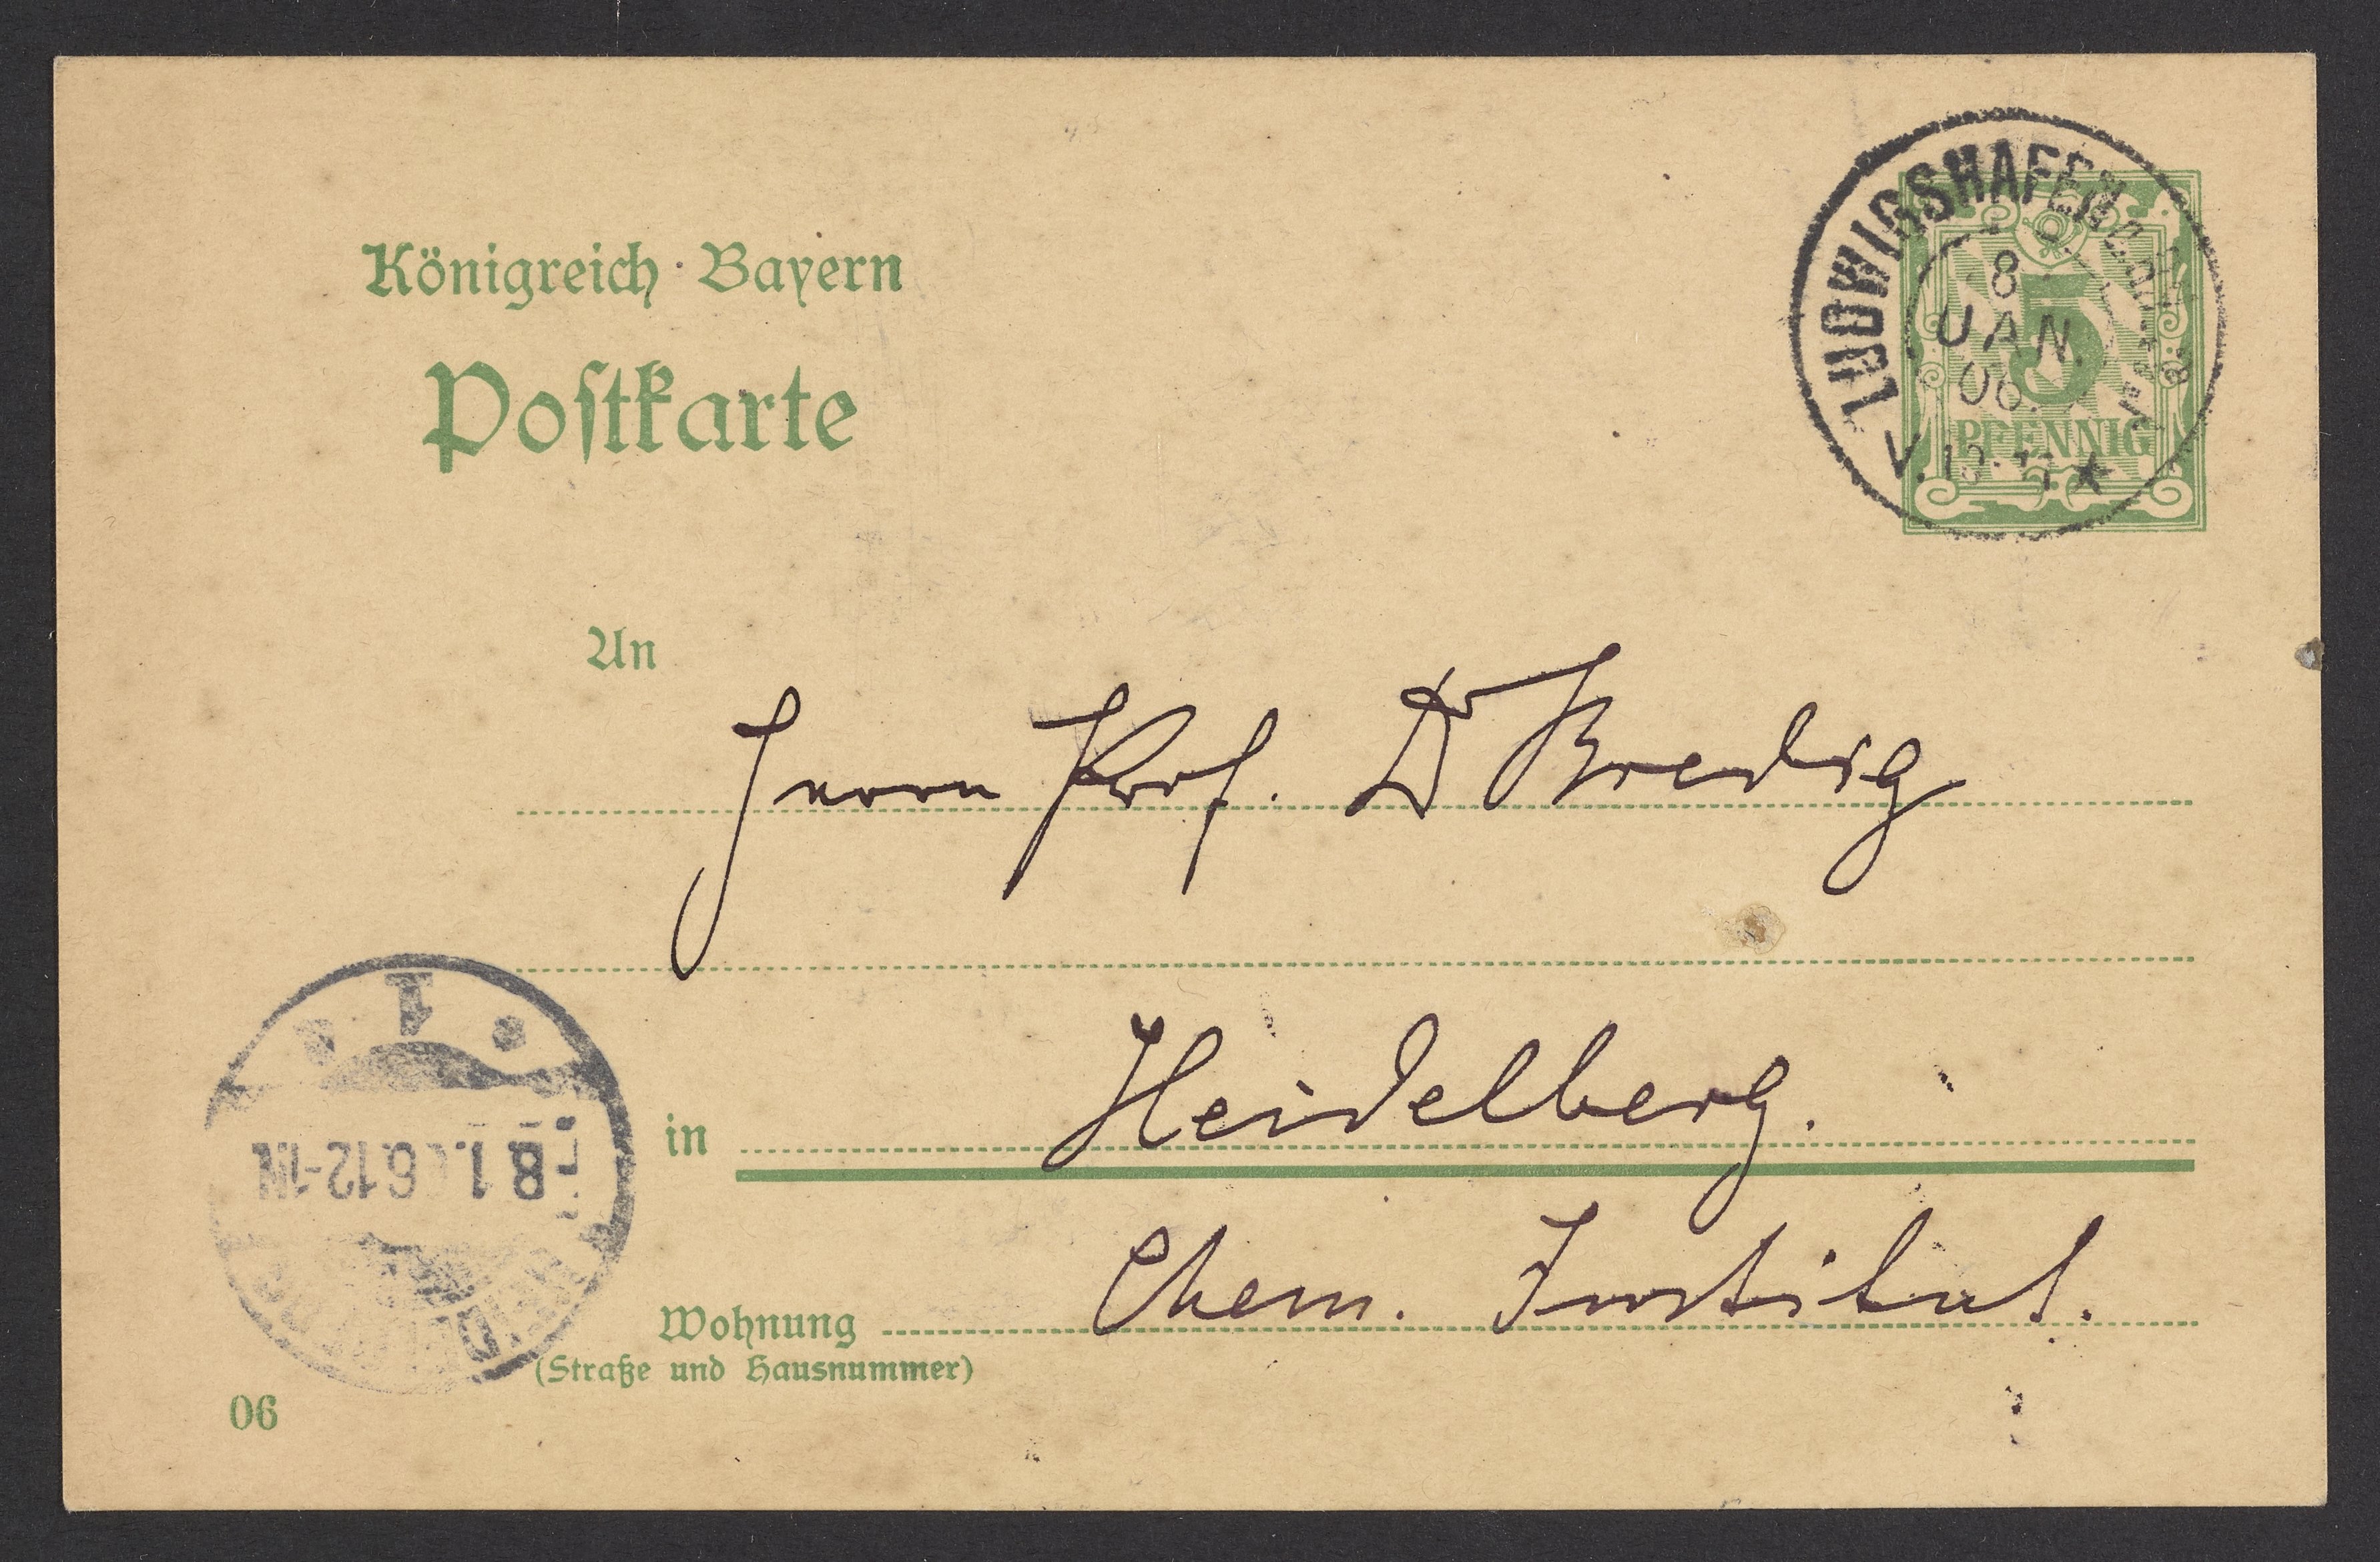 Königreich Bayern
Postkarte
LUDWIGSHAFEN
8
JAN.
06.
5
PFENNIG
An
Herrn Prof. Dr Bredig
in Heidelberg.
Wohnung Chem. Institut.
(Straße und Hausnummer)
1
8 1. 6.12-1N
06